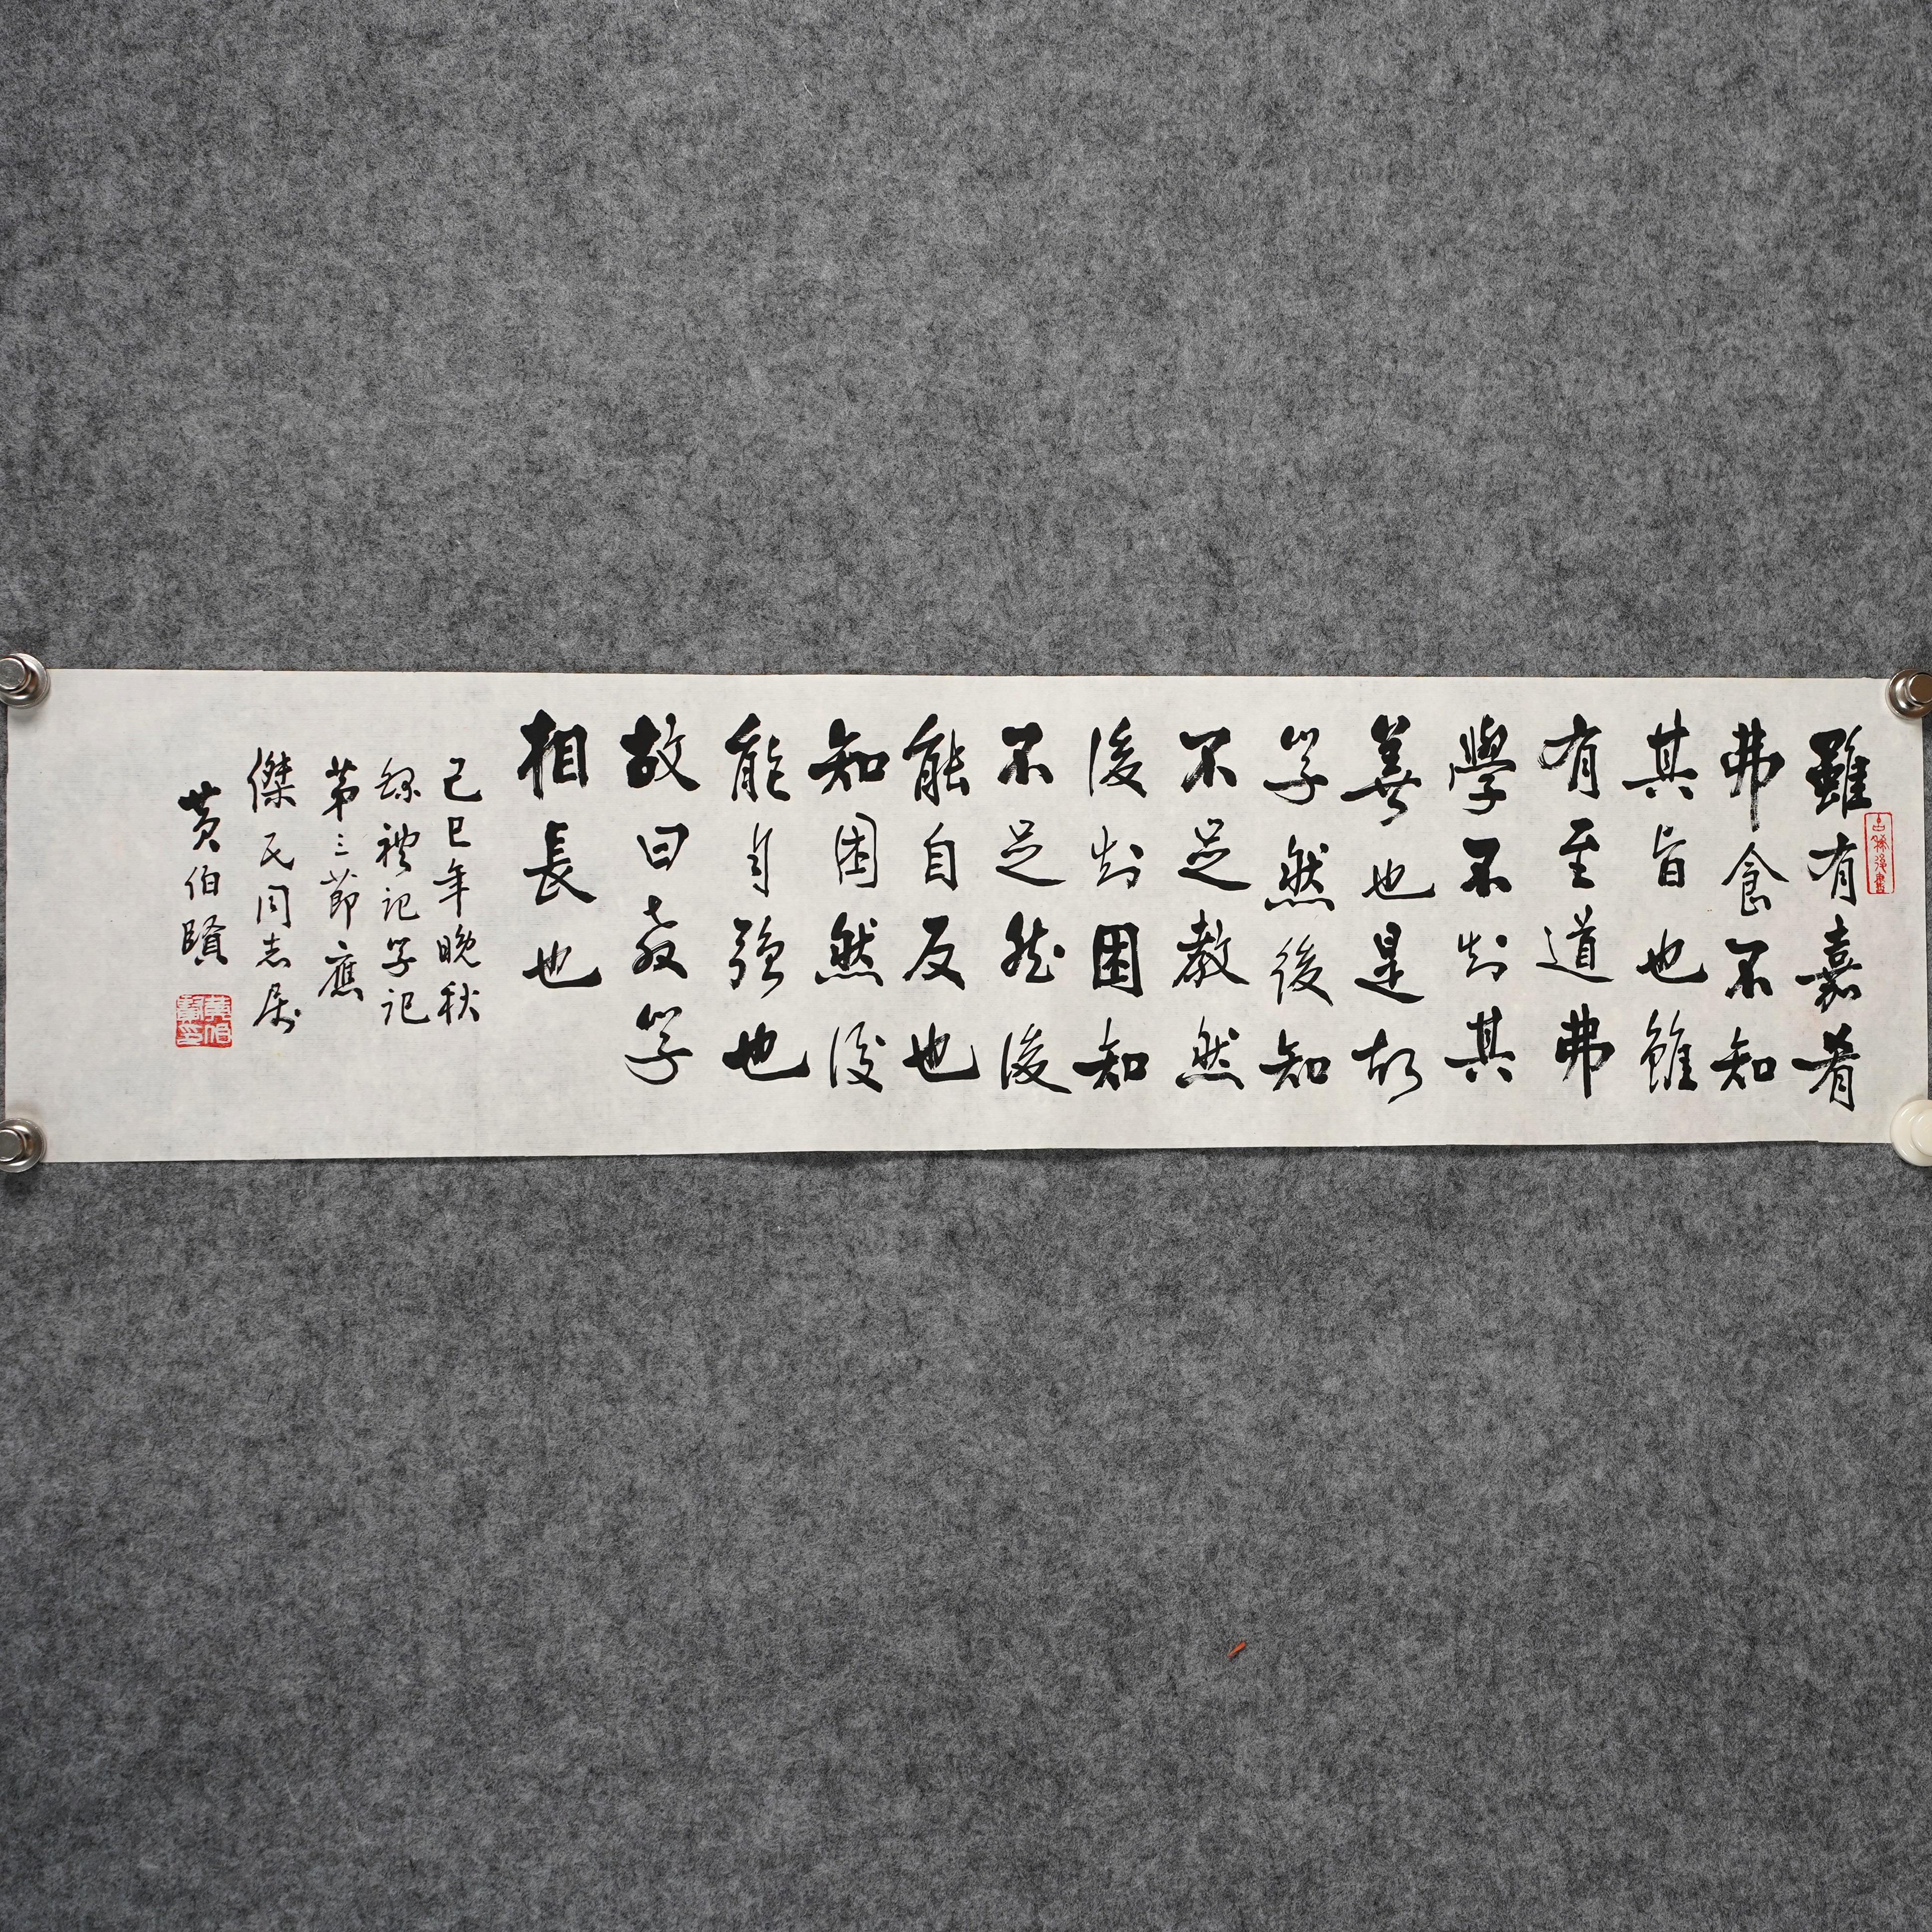 雖有嘉肴
弗食不知
其旨也雖
有至道弗
學不知其
善也是故
学然後知
不足教然
後知困知
不足然後
能自反也
知困然後
能自强也
故曰教学
相長也
己巳年晚秋
錄禮記学记
第三節應
傑民同志属
黄伯賢
黄伯賢印